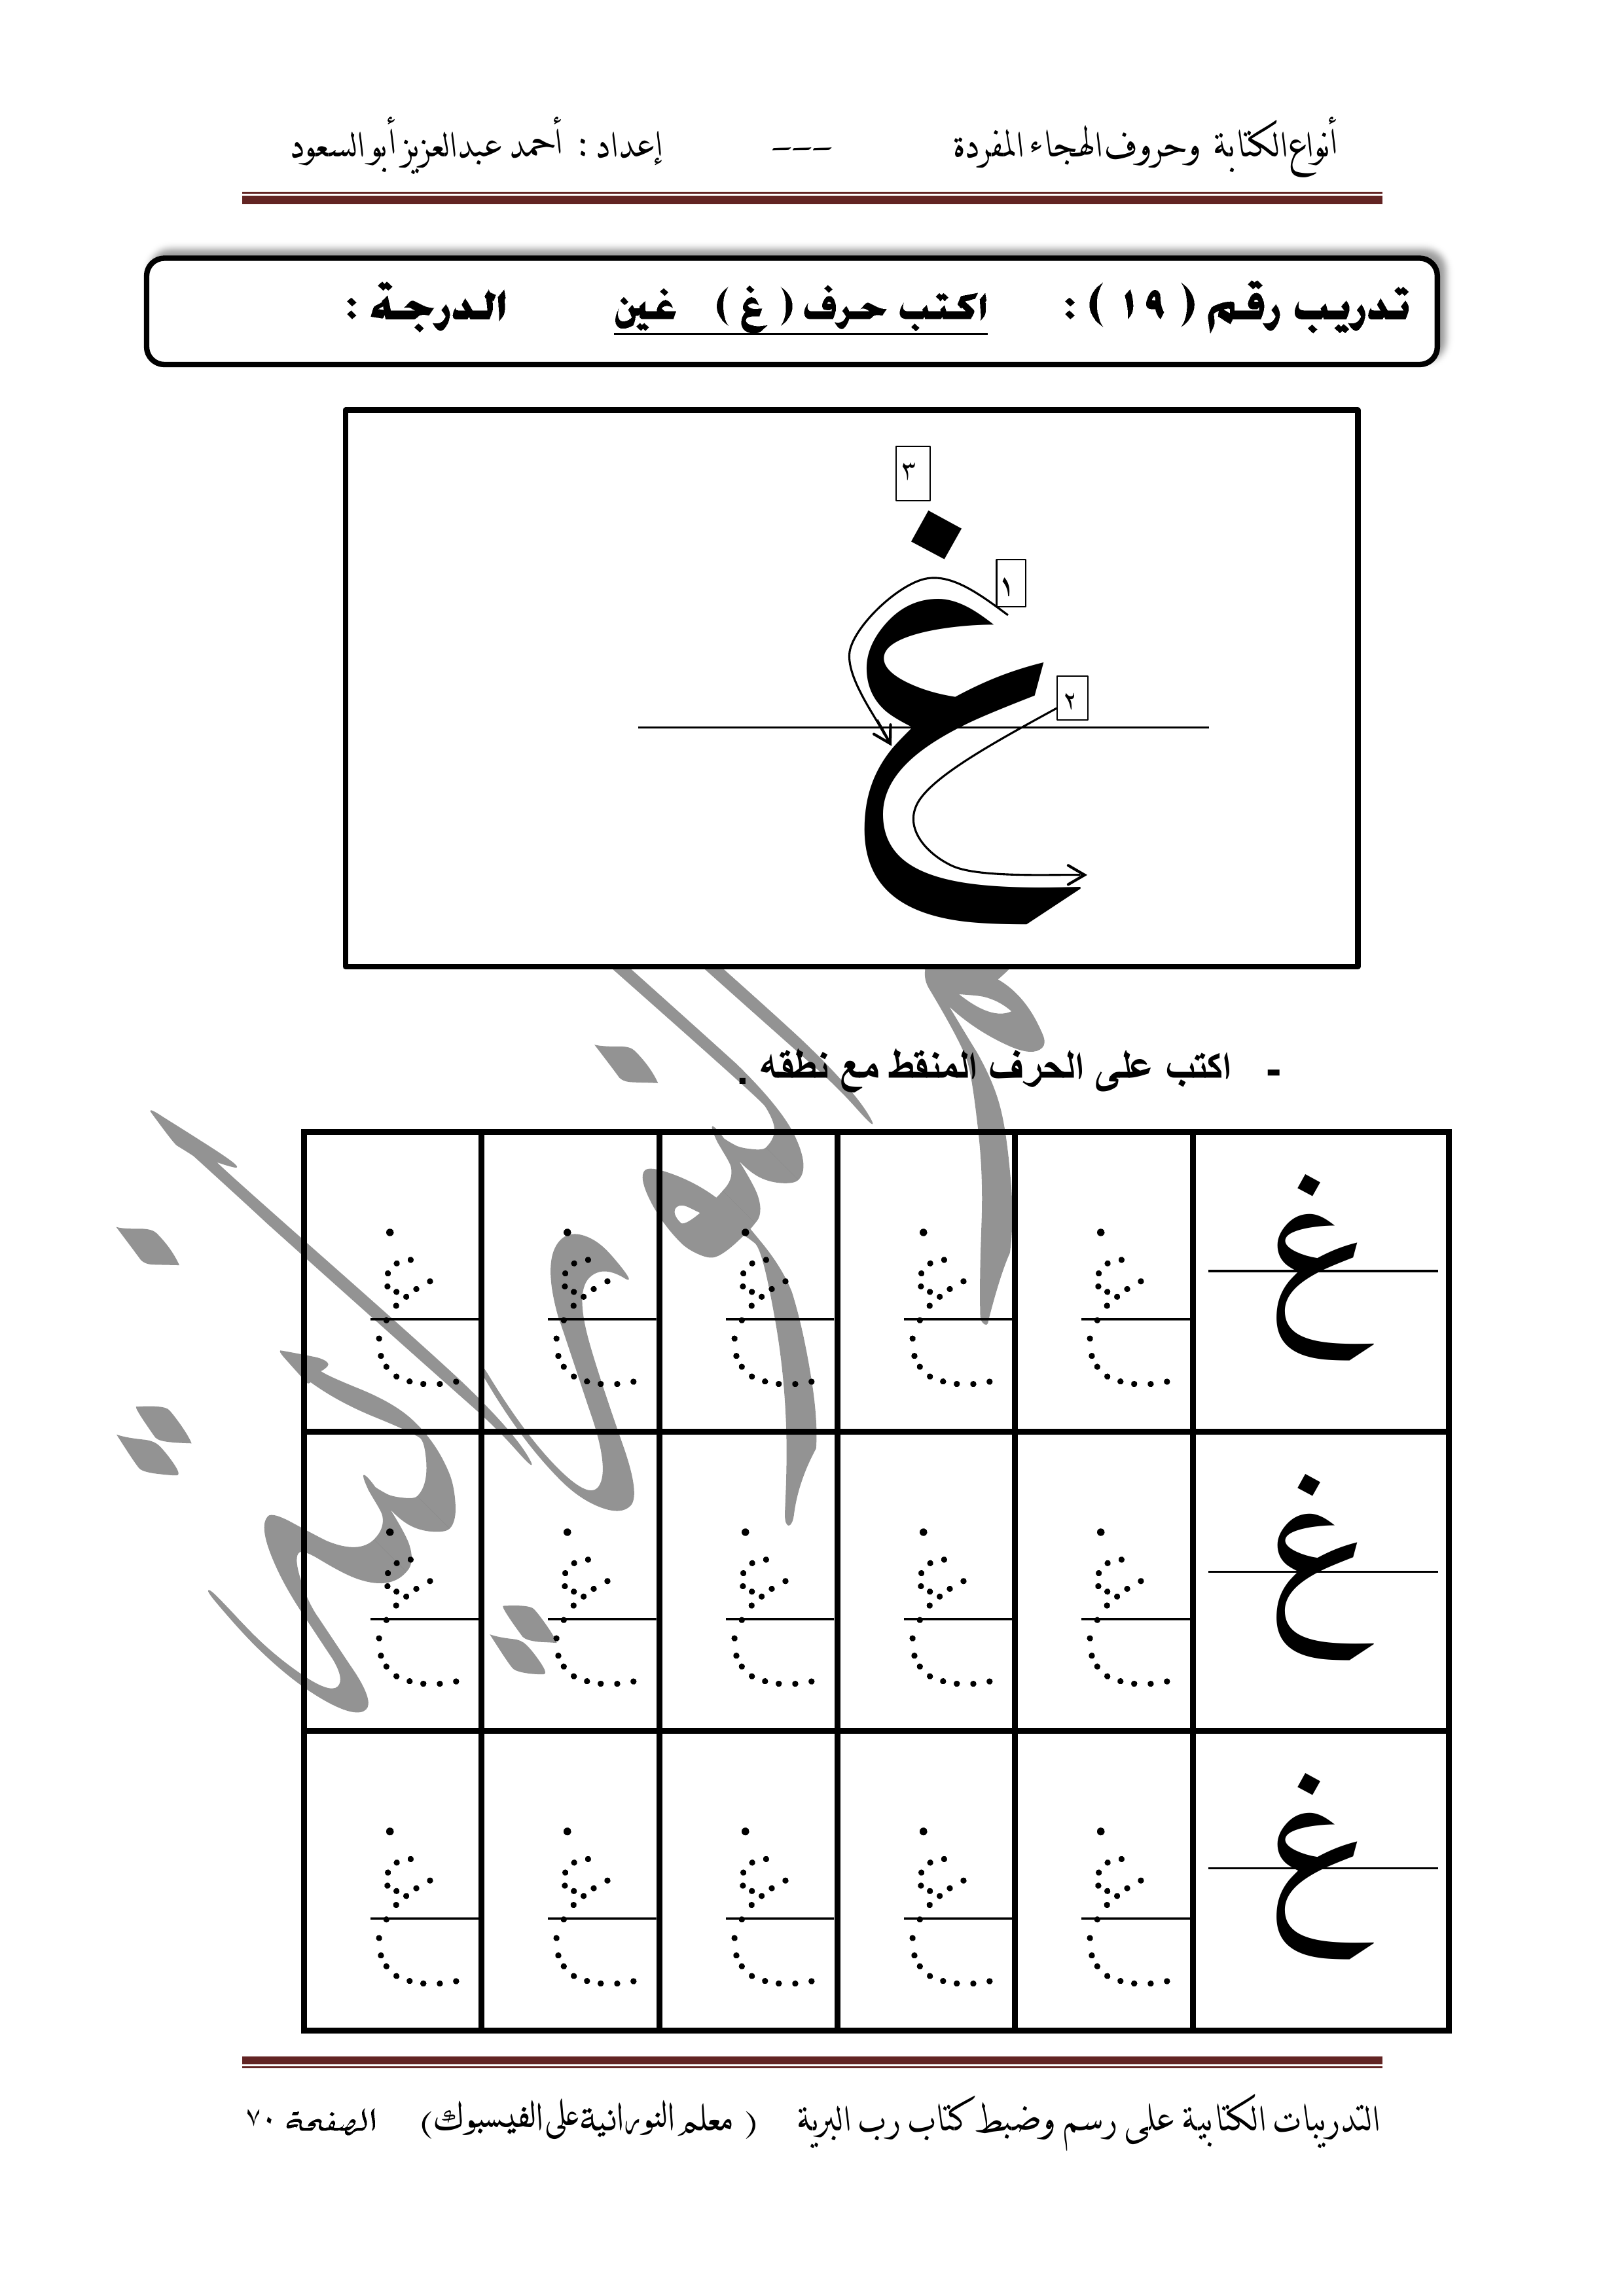 أنواع الكتابة وحروف الهجاء المفردة --- إعداد : أحمد عبدالعزيز أبو السعود
تدريب رقم ( ١٩ ) : اكتب حرف ( غ ) غين الدرجة :
٣
١
٢
غ
- اكتب على الحرف المنقط مع نطقه .
غ غ غ غ غ غ
غ غ غ غ غ غ
غ غ غ غ غ غ
التدريبات الكتابية على رسم وضبط كتاب رب البرية ( معلم النورانية على الفيسبوك) الصفحة ٧٠